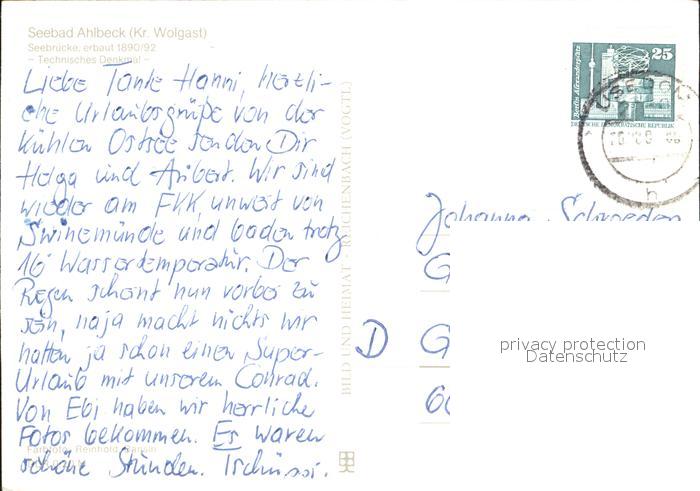 Seebad Ahlbeck (Kr. Wolgast)
Seebrücke, erbaut 1890/92
– Technisches Denkmal –
Liebe Tante Hanni, herzli-
che Urlaubsgrüße von der
kühlen Ostsee senden Dir
Helga und Aribert. Wir sind
wieder am FKK unweit von
Swinemünde und baden trotz
16° Wassertemperatur. Der
Regen scheint nun vorbei zu
sein, naja macht nichts wir
hatten ja schon einen Super-
Urlaub mit unserem Conrad.
Von Ebi haben wir herrliche
Fotos bekommen. Es waren
schöne Stunden. Tschüssi.
Farbfoto: Reinhold
BILD UND HEIMAT REICHENBACH (VOGTL)
25
Berlin-Alexanderplatz
DEUTSCHE DEMOKRATISCHE REPUBLIK
USEDOM
h
Johanna Schroeder
G
D G
privacy protection
Datenschutz